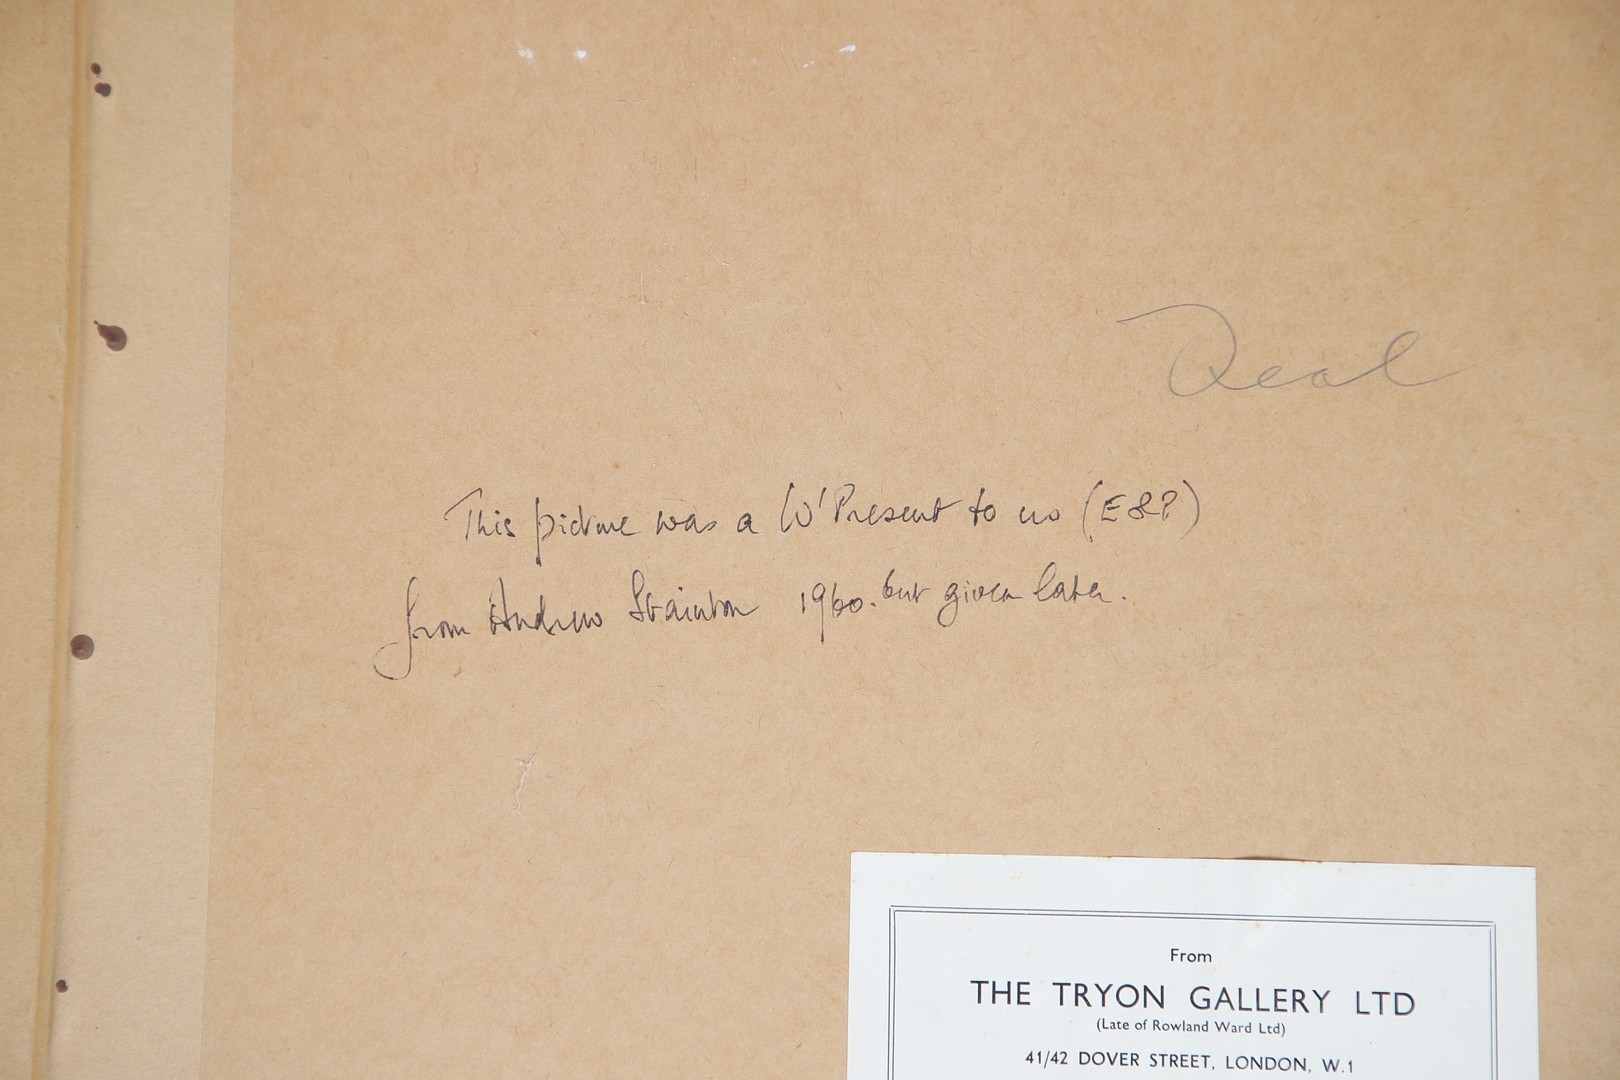 Deal
This picture was a W'Present to us (E&P)
from Andrew Stainton 1960. but given later.
From
THE TRYON GALLERY LTD
(Late of Rowland Ward Ltd)
41/42 DOVER STREET, LONDON, W.1